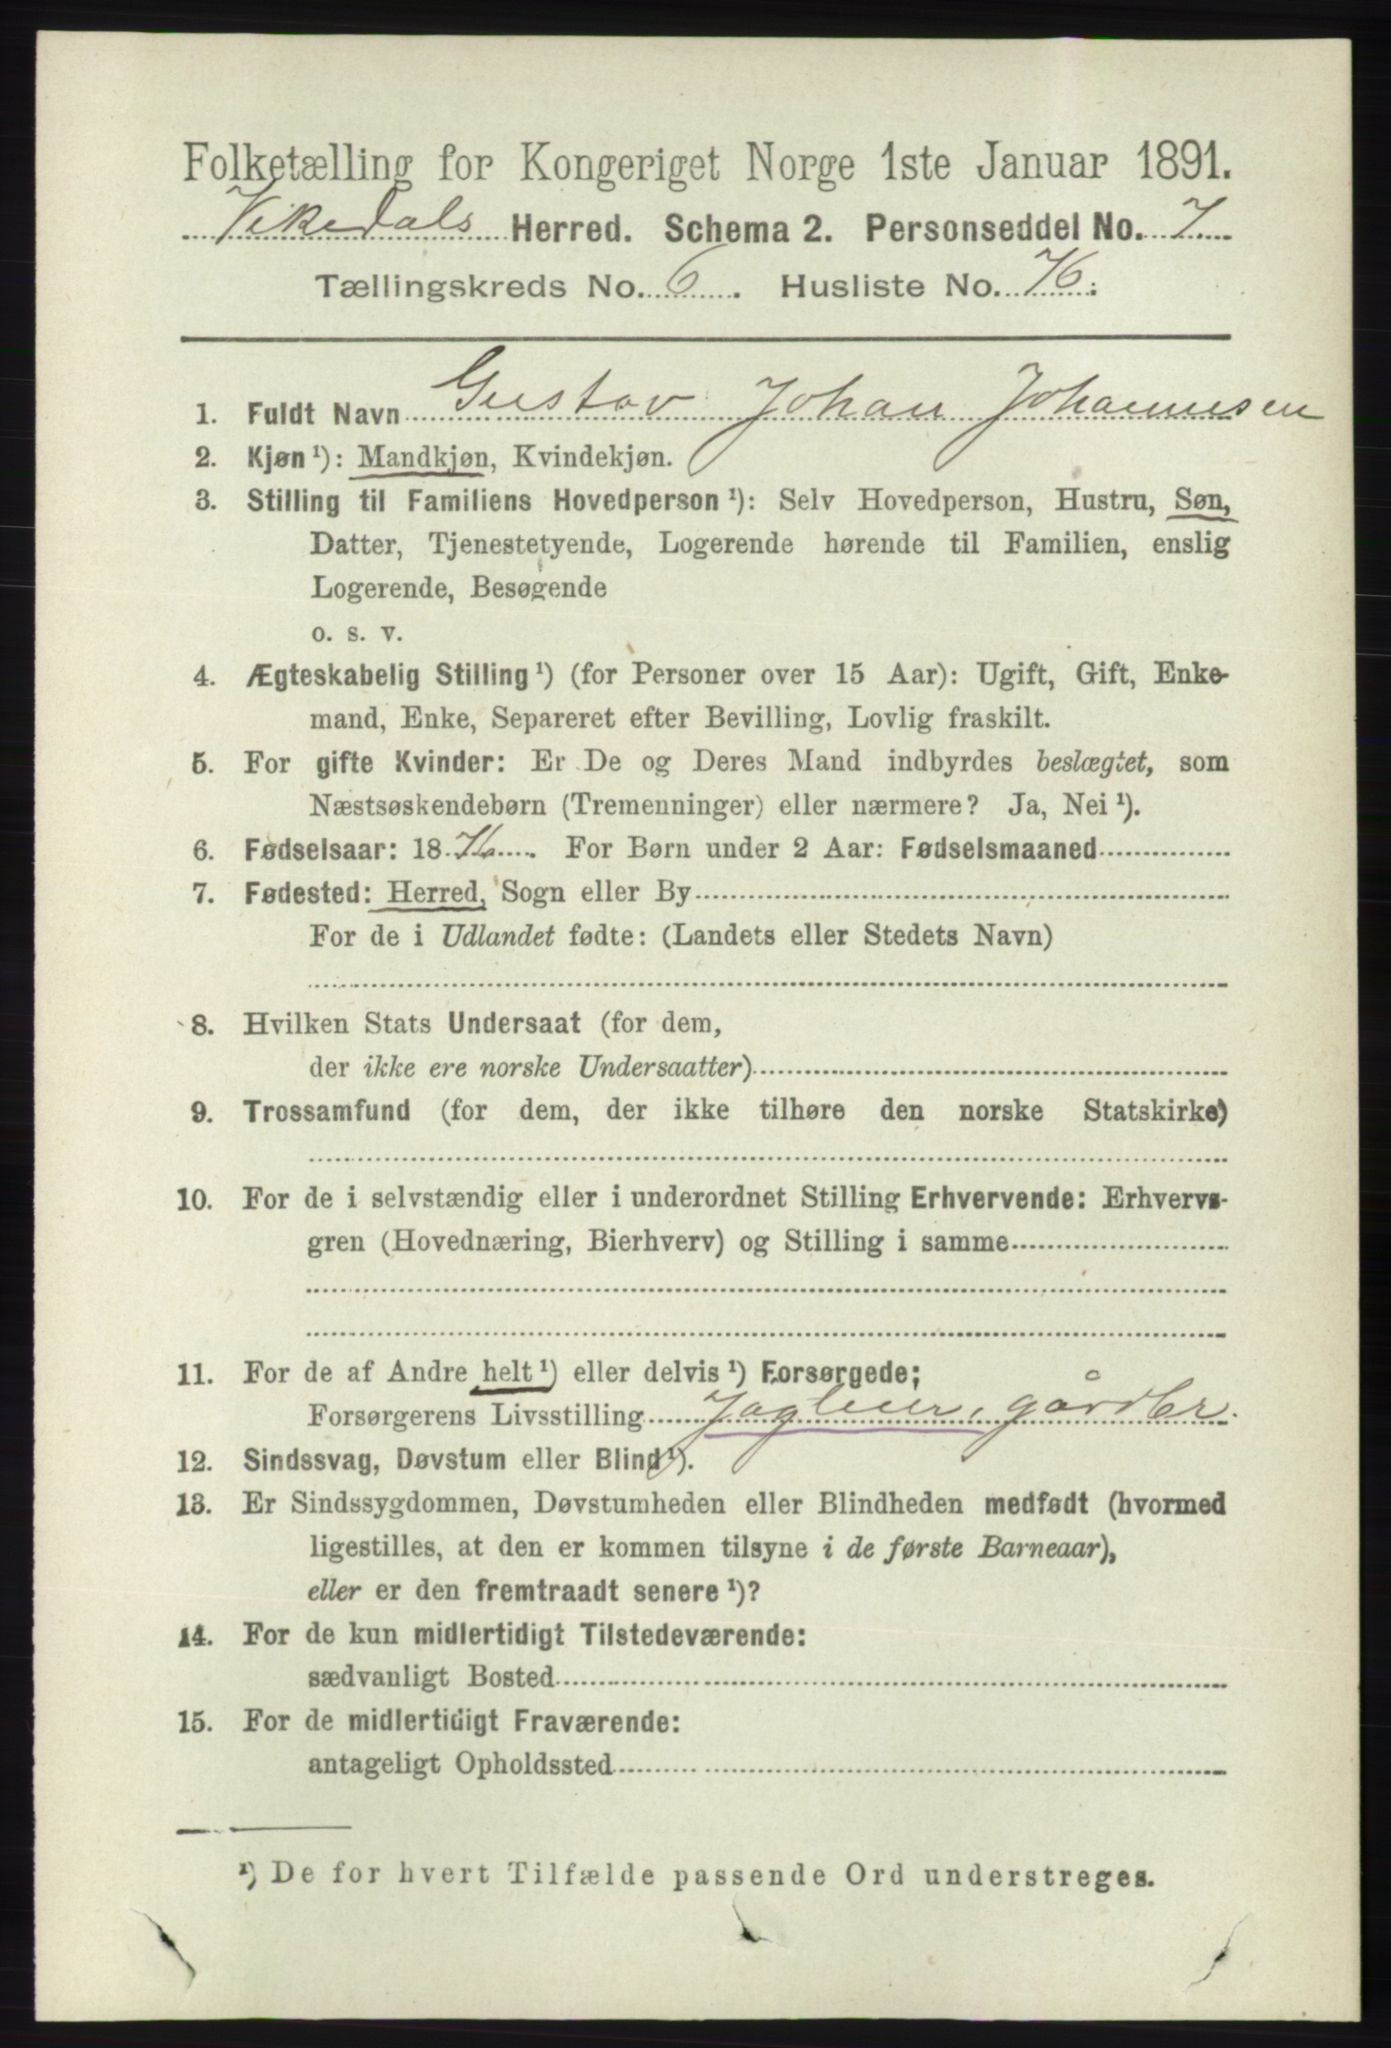 Folketælling for Kongeriget Norge 1ste Januar 1891.
Vikedals Herred. Schema 2. Personseddel No. 7
Tællingskreds No. 6. Husliste No. 76.
1. Fuldt Navn Gustav Johan Johannesen
2. Kjøn¹): Mandkjøn, Kvindekjøn.
3. Stilling til Familiens Hovedperson¹): Selv Hovedperson, Hustru, Søn,
Datter, Tjenestetyende, Logerende hørende til Familien, enslig
Logerende, Besøgende
o. s. v.
4. Ægteskabelig Stilling¹) (for Personer over 15 Aar): Ugift, Gift, Enke-
mand, Enke, Separeret efter Bevilling, Lovlig fraskilt.
5. For gifte Kvinder: Er De og Deres Mand indbyrdes beslægtet, som
Næstsøskendebørn (Tremenninger) eller nærmere? Ja, Nei¹).
6. Fødselsaar: 1876. For Børn under 2 Aar: Fødselsmaaned
7. Fødested: Herred, Sogn eller By
For de i Udlandet fødte: (Landets eller Stedets Navn)
8. Hvilken Stats Undersaat (for dem,
der ikke ere norske Undersaatter)
9. Trossamfund (for dem, der ikke tilhøre den norske Statskirke)
10. For de i selvstændig eller i underordnet Stilling Erhvervende: Erhvervs-
gren (Hovednæring, Bierhverv) og Stilling i samme
11. For de af Andre helt¹) eller delvis¹) Forsørgede;
Forsørgerens Livsstilling gårdbr.
12. Sindssvag, Døvstum eller Blind¹).
13. Er Sindssygdommen, Døvstumheden eller Blindheden medfødt (hvormed
ligestilles, at den er kommen tilsyne i de første Barneaar),
eller er den fremtraadt senere¹)?
14. For de kun midlertidigt Tilstedeværende:
sædvanligt Bosted
15. For de midlertidigt Fraværende:
antageligt Opholdssted
¹) De for hvert Tilfælde passende Ord understreges.